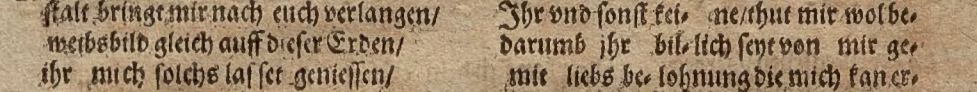 stalt bringt mir nach euch verlangen/
weibsbild gleich auff dieser Erden/
ihr mich solchs las set geniessen/
Ihr vnd sonst kei- ne/thut mir wol be-
darumb jhr bil-lich seyt von mir ge-
mit liebs be-lohnung die mich kan er-